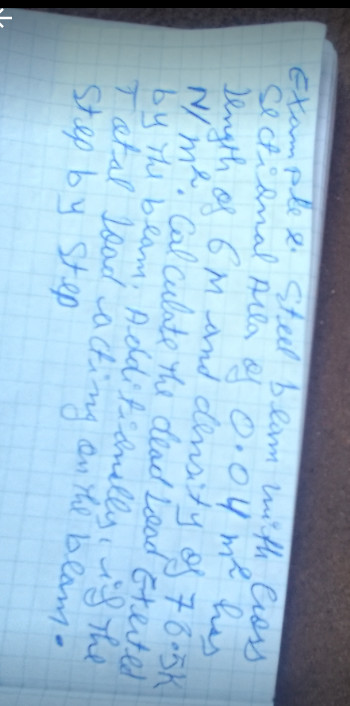 Example 2: Steel beam with Cross
Sectional Area of 0.04 m2 has
length of 6 m and density of 78.5K
N/m2. Calculate the dead Load Exerted
by the beam. Additionally, if the
Total load acting on the beam.
Step by Step